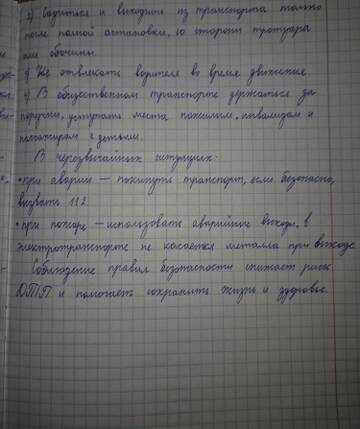 2) Садиться и выходить из транспорта только
после полной остановки, со стороны тротуара
или обочины.
3) Не отвлекать водителя во время движения.
4) В общественном транспорте держаться за
поручни, уступать места пожилым, инвалидам и
пассажирам с детьми.
В чрезвычайных ситуациях:
• при аварии — покинуть транспорт, если безопасно,
вызвать 112
• при пожаре — использовать аварийные выходы, в
электротранспорте не касаться металла при выходе
Соблюдение правил безопасности снижает риск
ДТП и помогает сохранить жизнь и здоровье.